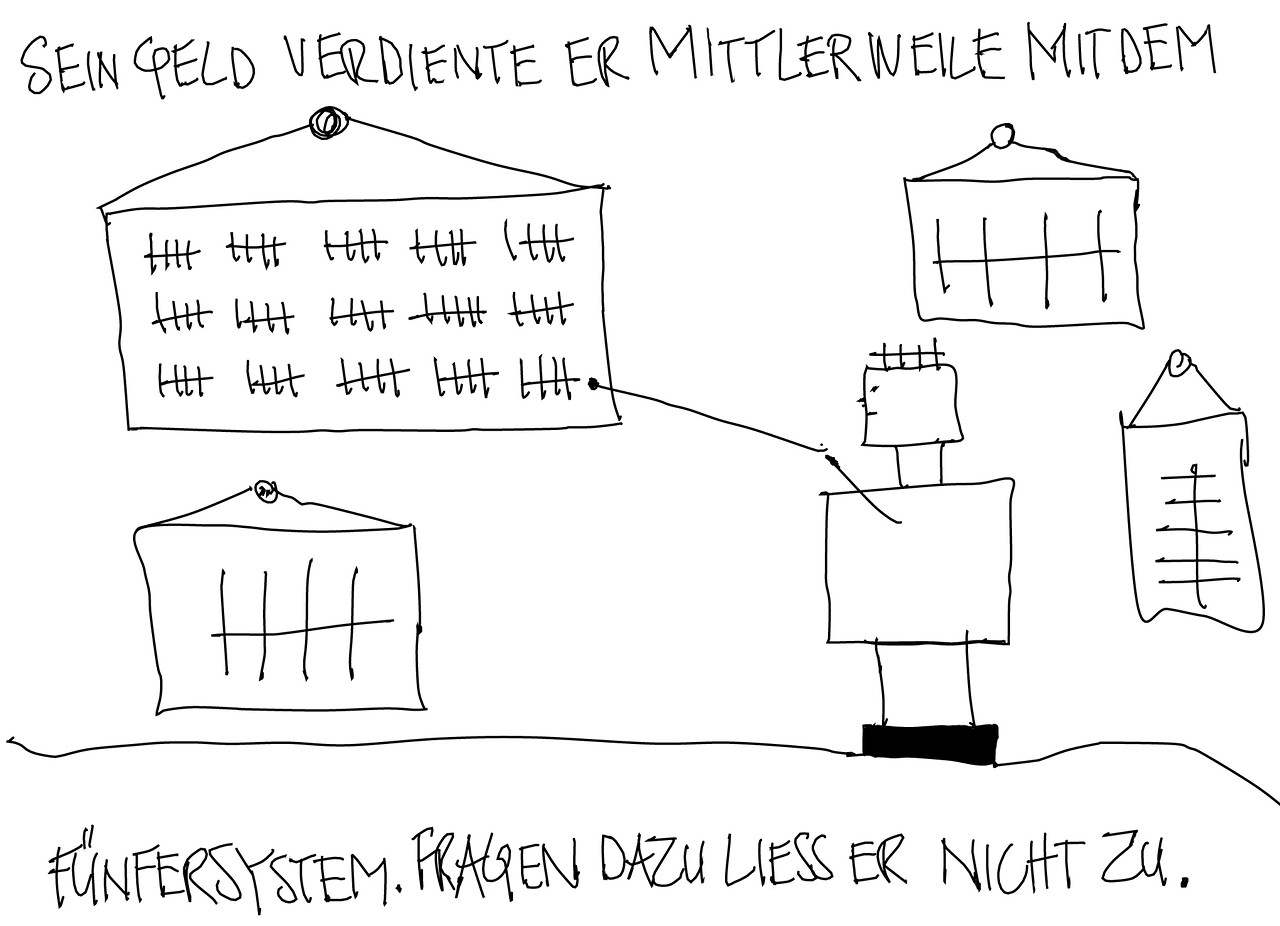 SEIN GELD VERDIENTE ER MITTLERWEILE MIT DEM
FÜNFERSYSTEM. FRAGEN DAZU LIESS ER NICHT ZU.